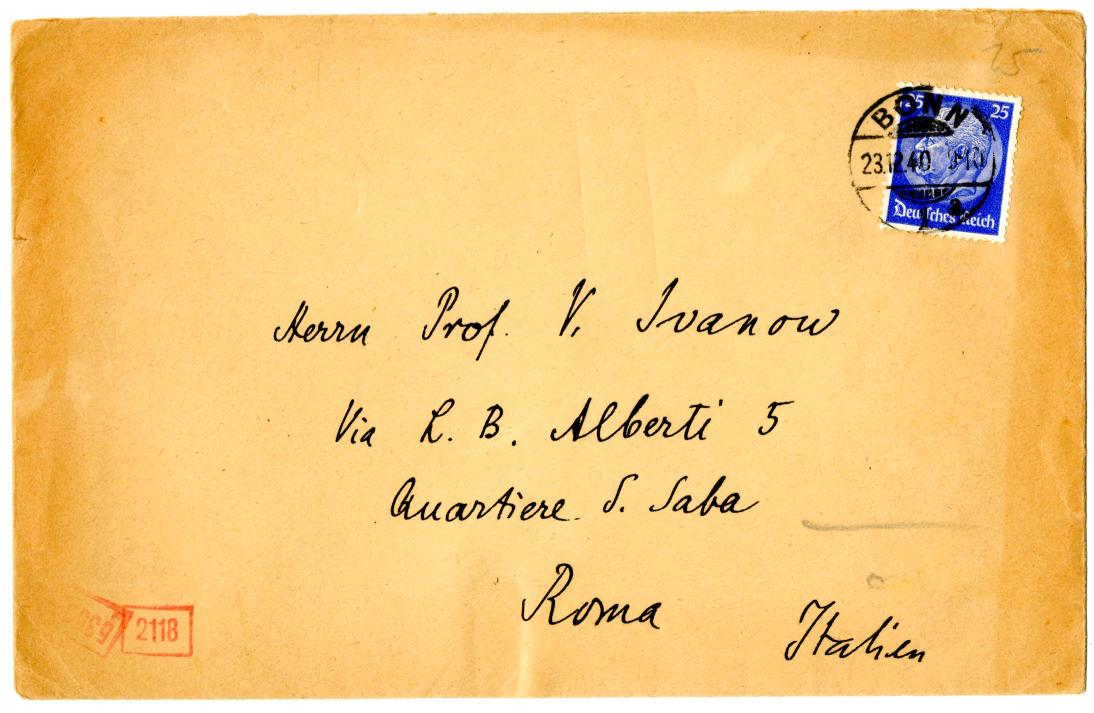 25
25 25
BONN
23.12.40 9-10
a
Deutsches Reich
Herrn Prof. V. Ivanow
Via L. B. Alberti 5
Quartiere S. Saba
Roma
Italien
2118